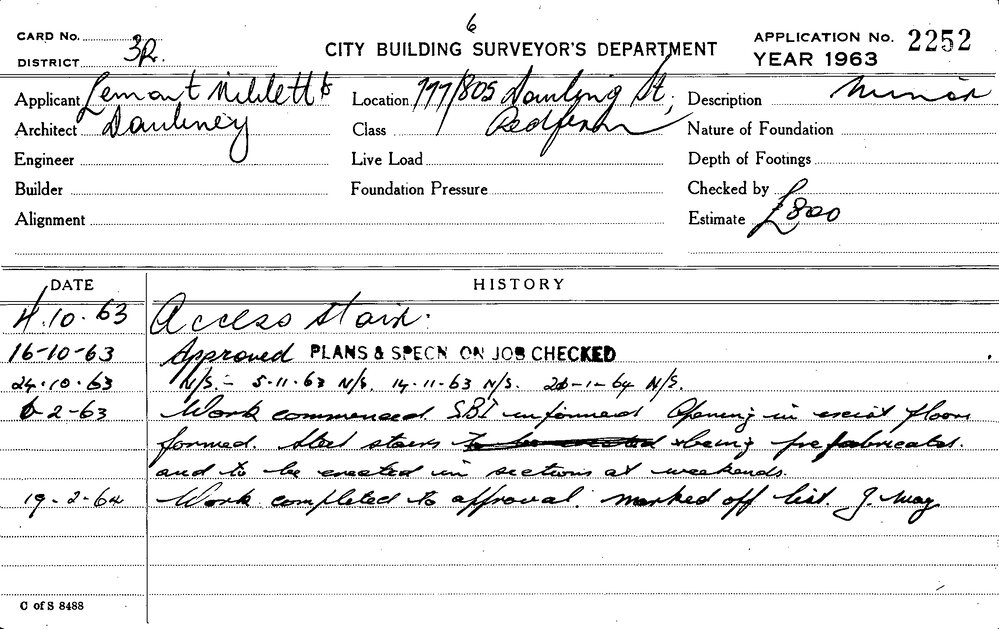 6
CARD No.
DISTRICT 3R.
CITY BUILDING SURVEYOR'S DEPARTMENT
APPLICATION No. 2252
YEAR 1963
Applicant Lemont Niblett &
Location 777/805 Dowling St,
Description Minor
Architect Daubney
Class Redfern
Nature of Foundation
Engineer
Live Load
Depth of Footings
Builder
Foundation Pressure
Checked by
Alignment
Estimate £800
DATE HISTORY
4.10.63 Access stair.
16-10-63 Approved PLANS & SPECN ON JOB CHECKED
24.10.63 N/S. - 5-11-63 N/S. 14-11-63 N/S. 1-64 N/S.
6-2-63 Work commenced SBI informed Opening in exist floors
formed. Steel stairs being prefabricated.
and to be erected in sections at weekends.
19-2-64 Work completed to approval. marked off list. J. May
C of S 8488